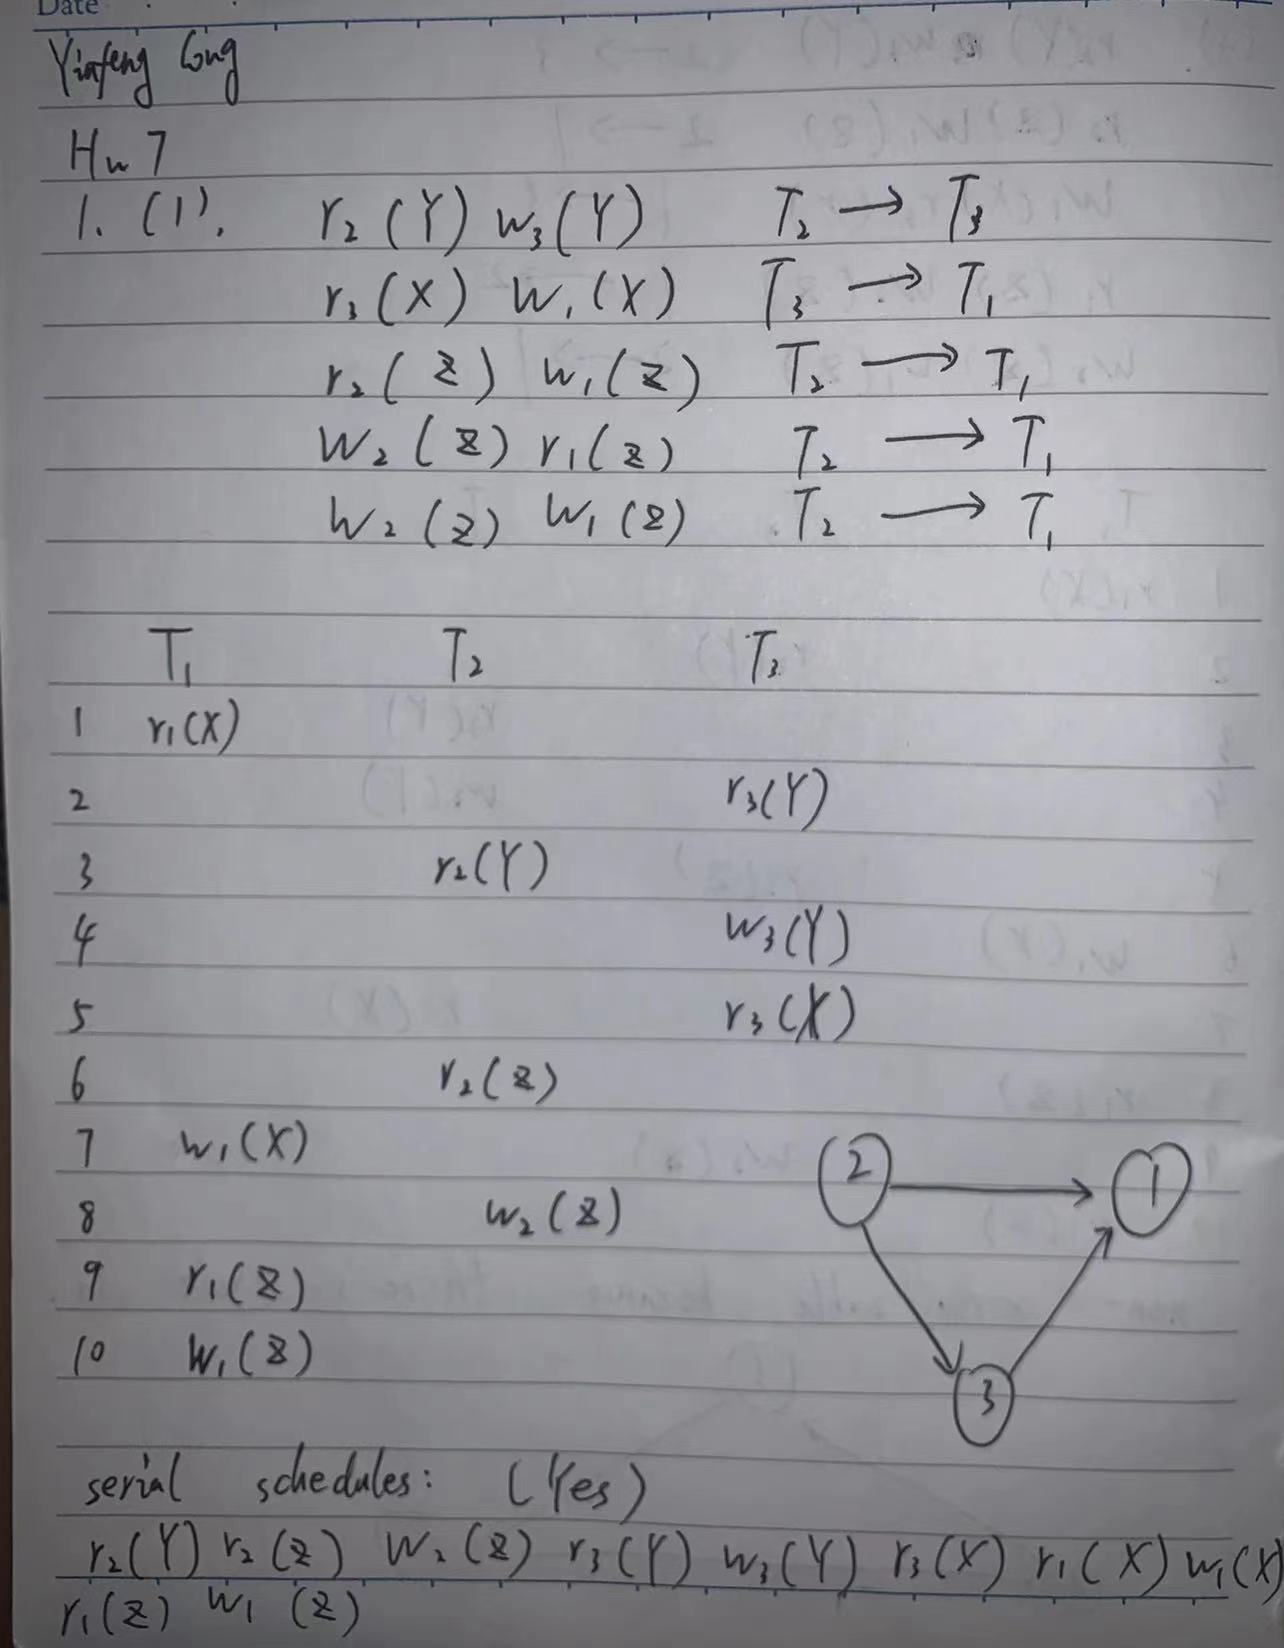 Date
Yinfeng Cong
Hw 7
1. (1). r₂(Y) w₃(Y) T₂ → T₃
r₃(X) w₁(X) T₃ → T₁
r₂(z) w₁(z) T₂ → T₁
w₂(z) r₁(z) T₂ → T₁
w₂(z) w₁(z) T₂ → T₁
T₁ T₂ T₃
1 r₁(X)
2 r₃(Y)
3 r₂(Y)
4 w₃(Y)
5 r₃(X)
6 r₂(z)
7 w₁(X)
8 w₂(z)
9 r₁(z)
10 w₁(z)
2 → 1
3
serial schedules: (Yes)
r₂(Y) r₂(z) w₂(z) r₃(Y) w₃(Y) r₃(X) r₁(X) w₁(X)
r₁(z) w₁(z)